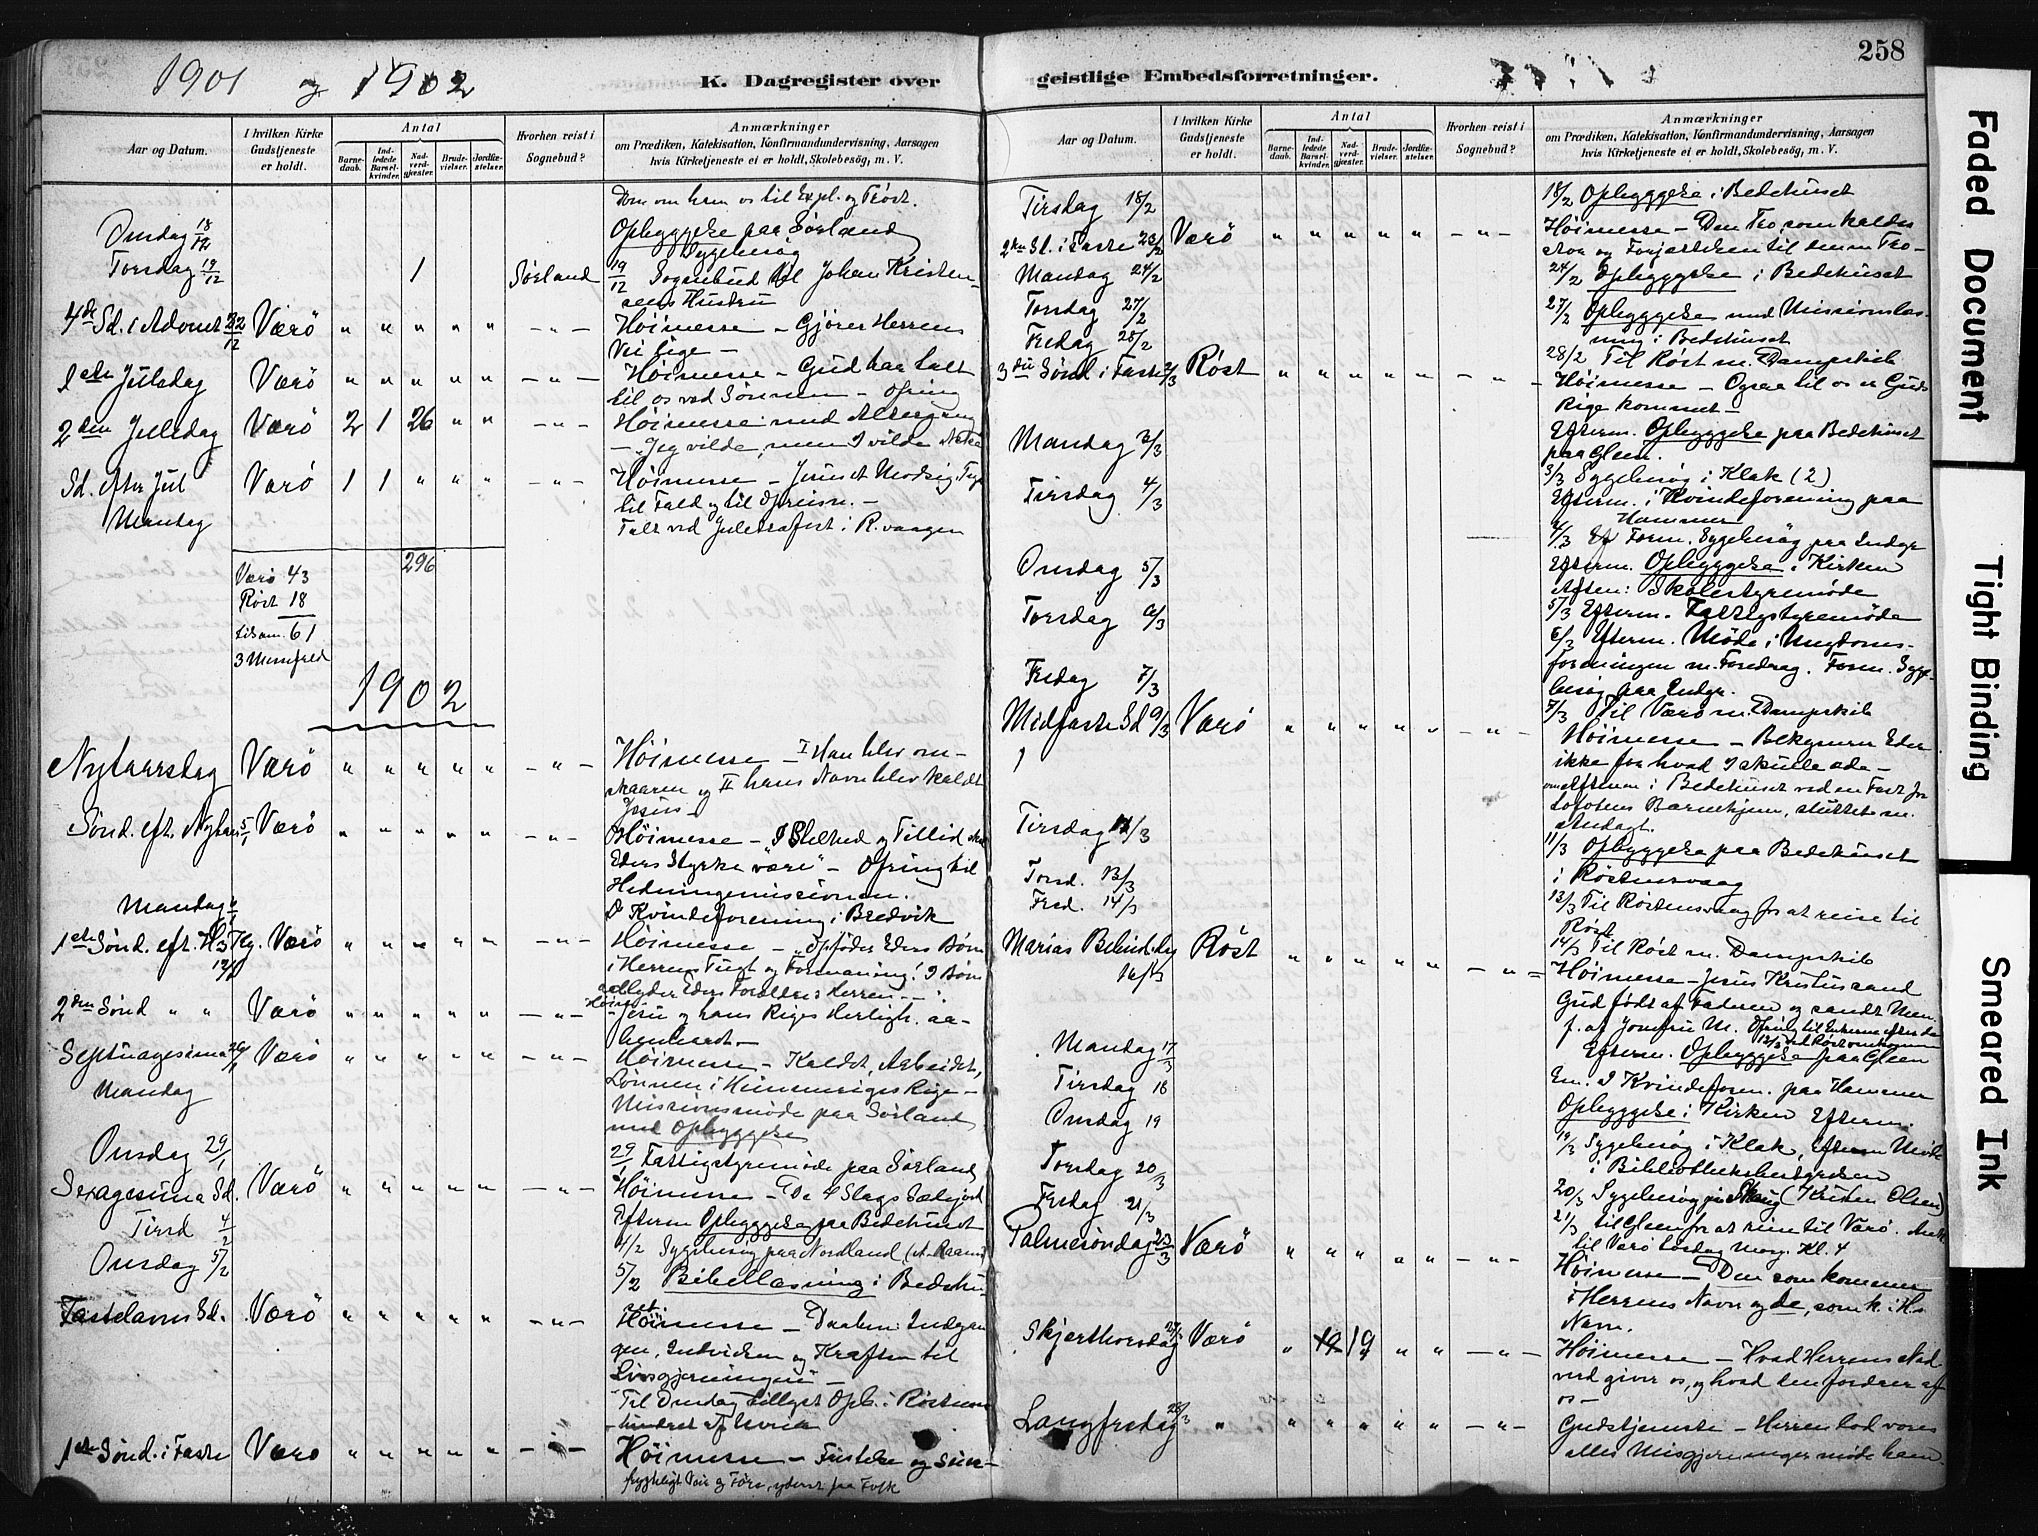 1901 og 1902
K. Dagregister over
Aar og Datum.
I hvilken Kirke Gudstjeneste er holdt.
Antal
Barnedaab.
Indledede Barselkvinder.
Nadverdgjester.
Brudevielser.
Jordfæstelser.
Hvorhen reist i Sognebud?
Anmærkninger
om Prædiken, Katekisation, Konfirmandundervisning, Aarsagen
hvis Kirketjeneste ei er holdt, Skolebesøg, m. V.
Onsdag 18/12 Opbyggelse paa Sørland
Sygebesøg
Torsdag 19/12 1 Sørland 19/12 Sognebud til Johan Kristen-
sens Hustru
4de Sd. i Advent 22/12 Værø " " " " " -"- Høimesse – Gjører Herrens
Vei lige –
1ste Juledag Værø " " " " " -"- Høimesse – Gud har talt
til os ved Sønnen – Ofring
2den Juledag Værø 2 1 26 " " -"- Høimesse med Altergang
– Jeg vilde, men I vilde ikke
Sd. efter Jul Værø 1 1 " " " -"- Høimesse –
til Fald og til Opreisn. –
Mandag Talt ved Juletræfest i R.vaagen
296
Værø 43
Røst 18
tilsam. 61
3 Messefald
1902
Nytaarsdag Værø " " " " " -"- Høimesse – I Han blev om-
skaaren og II hans Navn blev kaldt
Jesus
Sønd. eft. Nytaar 5/1 Værø " " " " " -"- Høimesse – I Stilhed og Tillid skal
Eders Styrke være" – Ofring til
Hedningemissionen.
Mandag I Kvindeforening i Bredvik
1ste Sønd. eft. H3 Kg. 12/1 Værø " " " " " -"- Høimesse – "Opføder Eders Børn
i Herrens Tugt og Formaning! I Børn
adlyder Eders Forældre i Herren –
2den Sønd " " Værø " " " " " -"- Jesu og hans Riges Herligh. aa-
benbaret –
Septuagesima 26/1 Værø " " " " " -"- Høimesse – Kaldet, Arbeidet,
Lønnen i Himmeriges Rige –
Mandag Missionsmøde paa Sørland
med Opbyggelse
Onsdag 29/1 29/1 Fattigstyremøde paa Sørland
Sexagesima Sd. Værø " " " " " -"- Høimesse – De 4 Slags Sædejord
Efterm Opbyggelse paa Bedehuset
Tirsd 4/2 4/2 Sygebesøg paa Nordland
Onsdag 5/2 5/2 Bibellæsning i Bedehu-
set.
Fastelavns Sd. Værø " " " " " -"- Høimesse – Daaben: Indgan-
gen, Indvielsen og Kraften til
Livsgjerningen –
Til Onsdag tillyst Opb. i Røstnes-
hindret af Uveir
1ste Sønd. i Faste Værø " " " " " -"- Høimesse – Fristelse og Seier –
frygteligt Veir og Føre, yderst faa Folk
258
geistlige Embedsforretninger.
Aar og Datum.
I hvilken Kirke Gudstjeneste er holdt.
Antal
Barnedaab.
Indledede Barselkvinder.
Nadverdgjester.
Brudevielser.
Jordfæstelser.
Hvorhen reist i Sognebud?
Anmærkninger
om Prædiken, Katekisation, Konfirmandundervisning, Aarsagen
hvis Kirketjeneste ei er holdt, Skolebesøg, m. V.
Tirsdag 18/2 18/2 Opbyggelse i Bedehuset
2den Sd. i Faste 23/2 Værø " " " " " -"- Høimesse – Den Tro, som kaldes
stor og Forjættelsen til denne Tro –
Mandag 24/2 24/2 Opbyggelse i Bedehuset
Torsdag 27/2 27/2 Opbyggelse med Missionslæs-
ning i Bedehuset
Fredag 28/2 28/2 Til Røst m. Dampskib
3die Sønd. i Faste 2/3 Røst " " " " " -"- Høimesse – Ogsaa til os er Guds
Rige kommet –
Efterm. Opbyggelse paa Bedehuset
paa Gleen.
Mandag 3/3 3/3 Sygebesøg i Klak (2)
Efterm. i Kvindeforening paa
Hammer
Tirsdag 4/3 4/3 Form. Sygebesøg paa Indgr
Efterm. Opbyggelse i Kirken
Aften: Skolestyremøde
Onsdag 5/3 5/3 Efterm. Fattigstyremøde
Torsdag 6/3 6/3 Efterm. Møde i Ungdoms-
foreningen m. Foredrag. Form. Syge-
besøg paa Indgr.
Fredag 7/3 7/3 Til Værø m. Dampskib
Midfaste Sd 9/3 Værø " " " " " -"- Høimesse – Bekymrer Eder
ikke for hvad I skulle æde –
Aftenen i Bedehuset ved en Fest for
Lofotens Barnehjem, sluttet m.
Andagt.
Tirsdag 11/3 11/3 Opbyggelse paa Bedehuset
i Røstnesvaag
Torsd. 13/3 13/3 Til Røstnesvaag for at reise til
Røst
Fred. 14/3 14/3 Til Røst m. Dampskib
Marias Bebud. dg 16/3 Røst " " " " " -"- Høimesse – Jesus Kristus sand
Gud født af Faderen og sandt Men.
f. af Jomfru M.
Efterm. Opbyggelse paa Gleen
Mandag 17/3 Em. I Kvindeforen. paa Hammer
Tirsdag 18 Opbyggelse i Kirken Efterm.
Onsdag 19 19/3 Sygebesøg i Klak, Efterm Møde
i Bibliotheksbestyrelsen
Torsdag 20/3 20/3 Sygebesøg (Kristen Olsen)
Fredag 21/3 21/3 til Gleen for at reise til Værø.
til Værø Lørdag Morg. Kl. 4
Palmesøndag 23/3 Værø " " " " " -"- Høimesse – Den som kommer
i Herrens Navn og de, som k. i H.s
Navn.
Skjærthorsdag 27/3 Værø " 19 " " -"- Høimesse – Hvad Herrens Nad-
verd giver os, og hvad den fordrer af
os –
Langfredag 28/3 " " " " " " -"- Gudstjeneste – Herren lod vores
alles Misgjerninger møde ham
Faded Document
Tight Binding
Smeared Ink